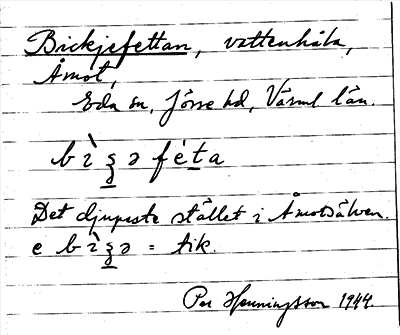 Bickjefettan, vattenhåla,
Åmot,
Eda sn, Jösse hd, Värml län.
b ì ʒ ə f é t a
Det djupaste stället i Åmotsälven.
e b ì ʒ ə = tik.
Per Henningsson 1944